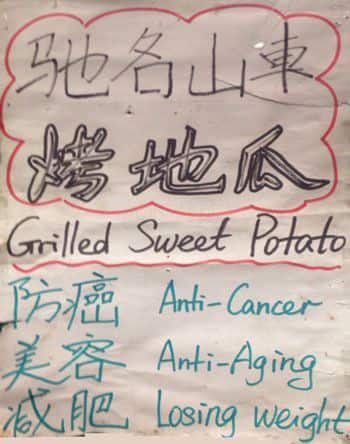 驰名山東
烤地瓜
Grilled Sweet Potato
防癌 Anti-Cancer
美容 Anti-Aging
减肥 Losing weight